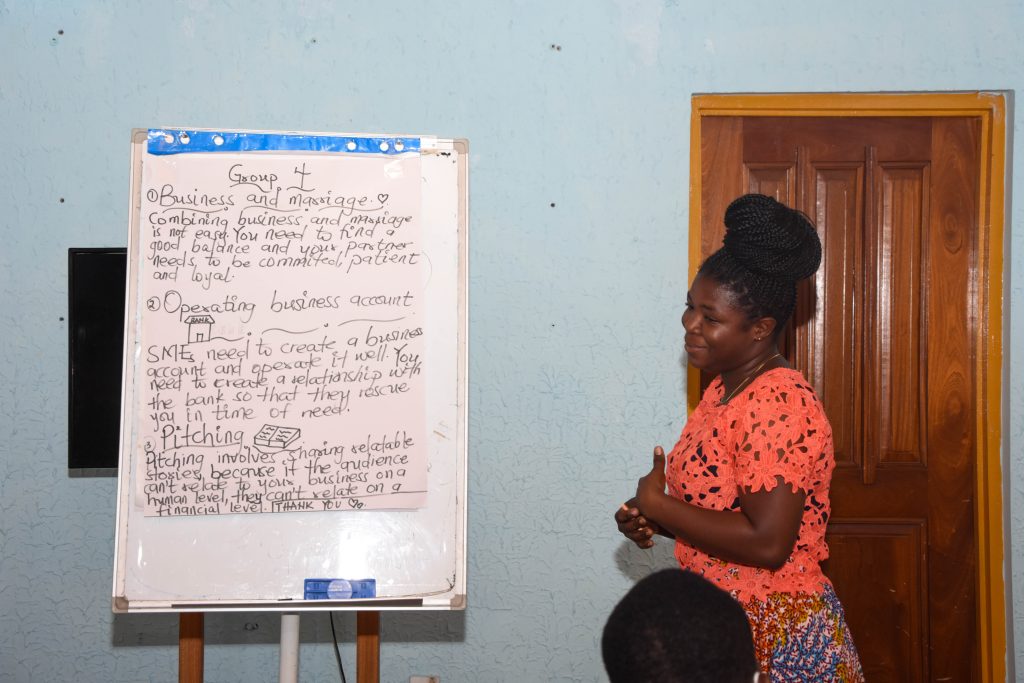 Group 4
① Business and marriage. ♡
Combining business and marriage
is not easy. You need to find a
good balance and your partner
needs, to be commited, patient
and loyal.
② Operating business account
BANK
SMEs need to create a business
account and operate it well. You
need to create a relationship with
the bank so that they rescue
you in time of need.
③ Pitching
Pitching involves sharing relatable
stories, because if the audience
can't relate to your business on a
human level, they can't relate on a
financial level. THANK YOU ♡.